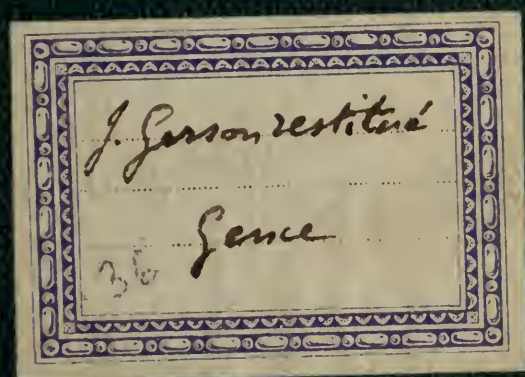 J. Gerson restitué
Gence